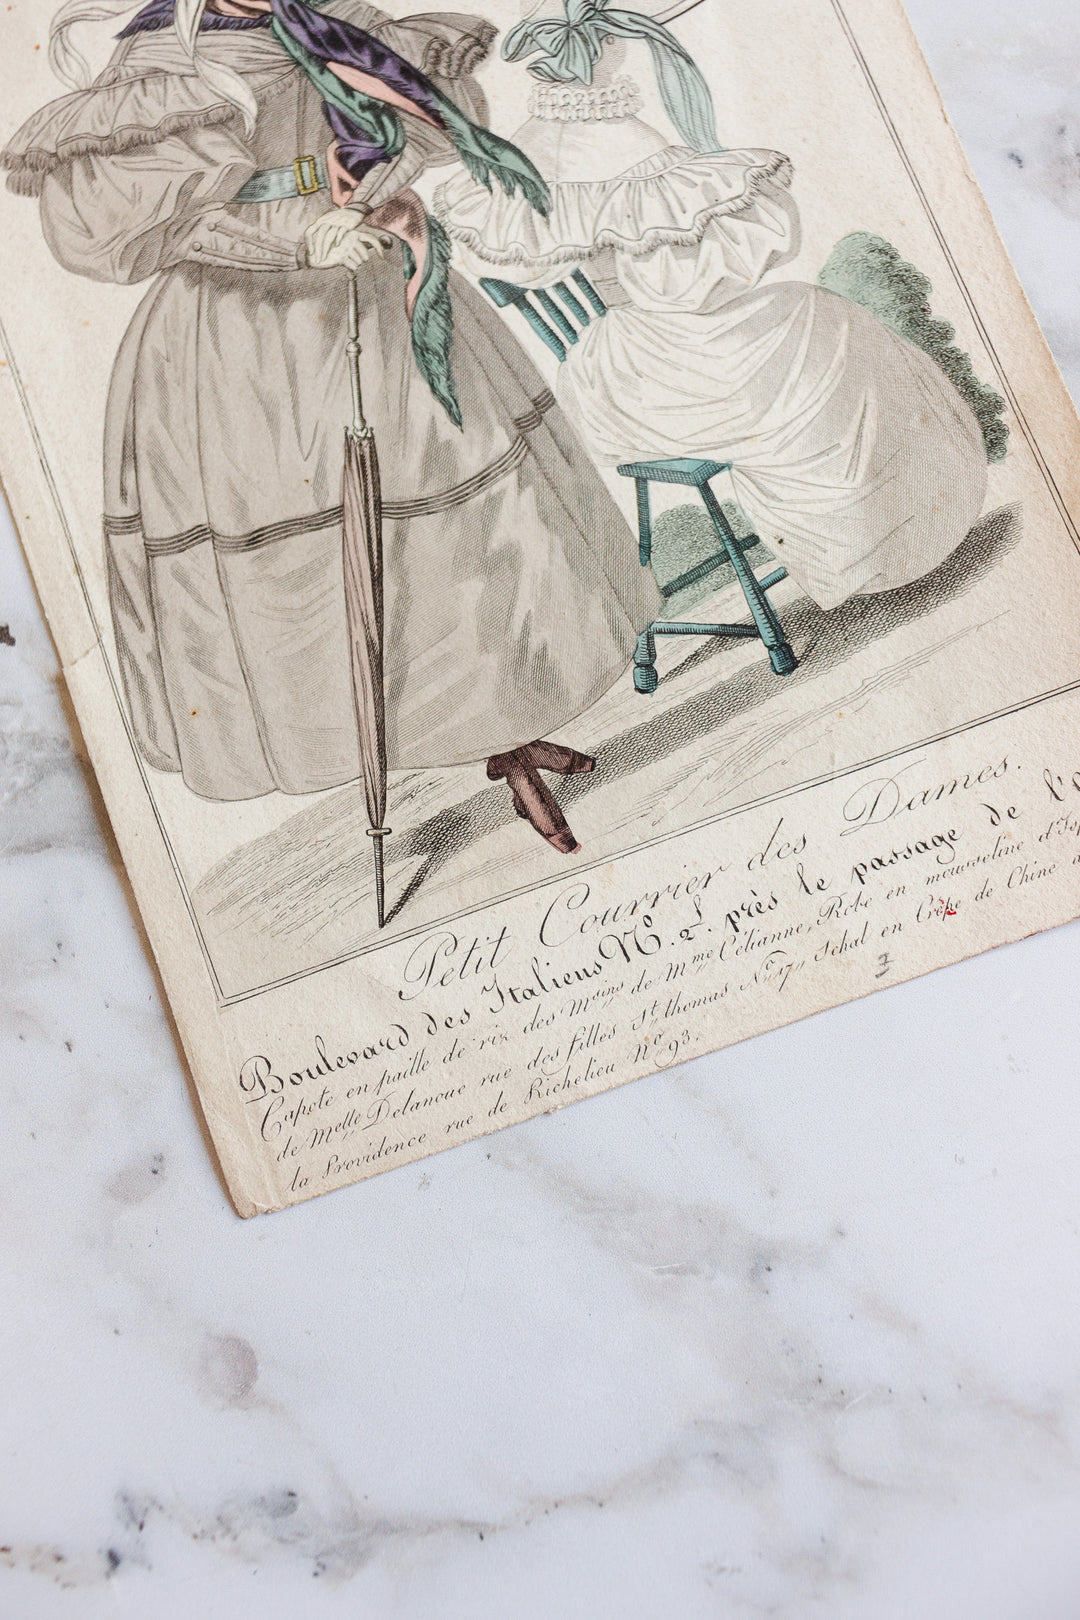 Petit Courrier des Dames.
Boulevard des Italiens N.º 2.f. près le passage de l'
Capote en paille de riz des Msins de Mme Célianne, Robe en mousseline
de Melle Delanoue rue des filles St. thomas Nº 17, Schal en Crêpe de Chine
la Providence rue de Richelieu Nº 93.
7